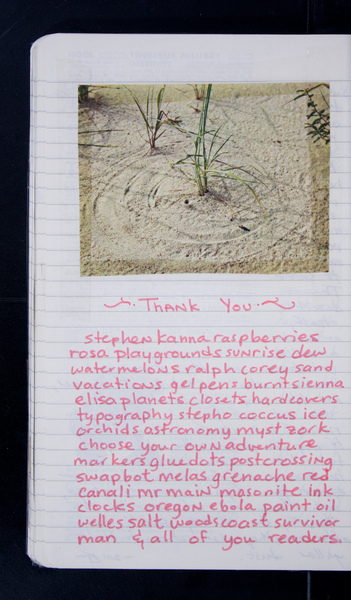 ~ Thank You ~
stephen kanna raspberries
rosa playgrounds sunrise dew
watermelons ralph corey sand
vacations gel pens burnt sienna
elisa planets closets hardcovers
typography stepho coccus ice
orchids astronomy myst zork
choose your own adventure
markers gluedots postcrossing
swapbot melas grenache red
canali mr main masonite ink
clocks oregon ebola paint oil
welles salt woods coast survivor
man & all of you readers.